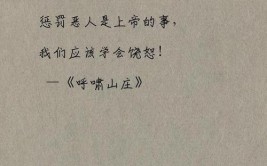 惩罚恶人是上帝的事，
我们应该学会饶恕！
—《呼啸山庄》